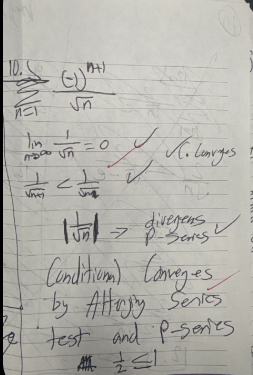 10. (-1)^{n+1}
∑ n=1 ∞ √n
lim n→∞ 1/√n = 0 ✓ ✓ C. Converges
1/√(n+1) < 1/√n ✓
|1/√n| → divergens P-Series ✓
Conditional Converges
by Alternying Series
test and p-series
1/2 ≤ 1